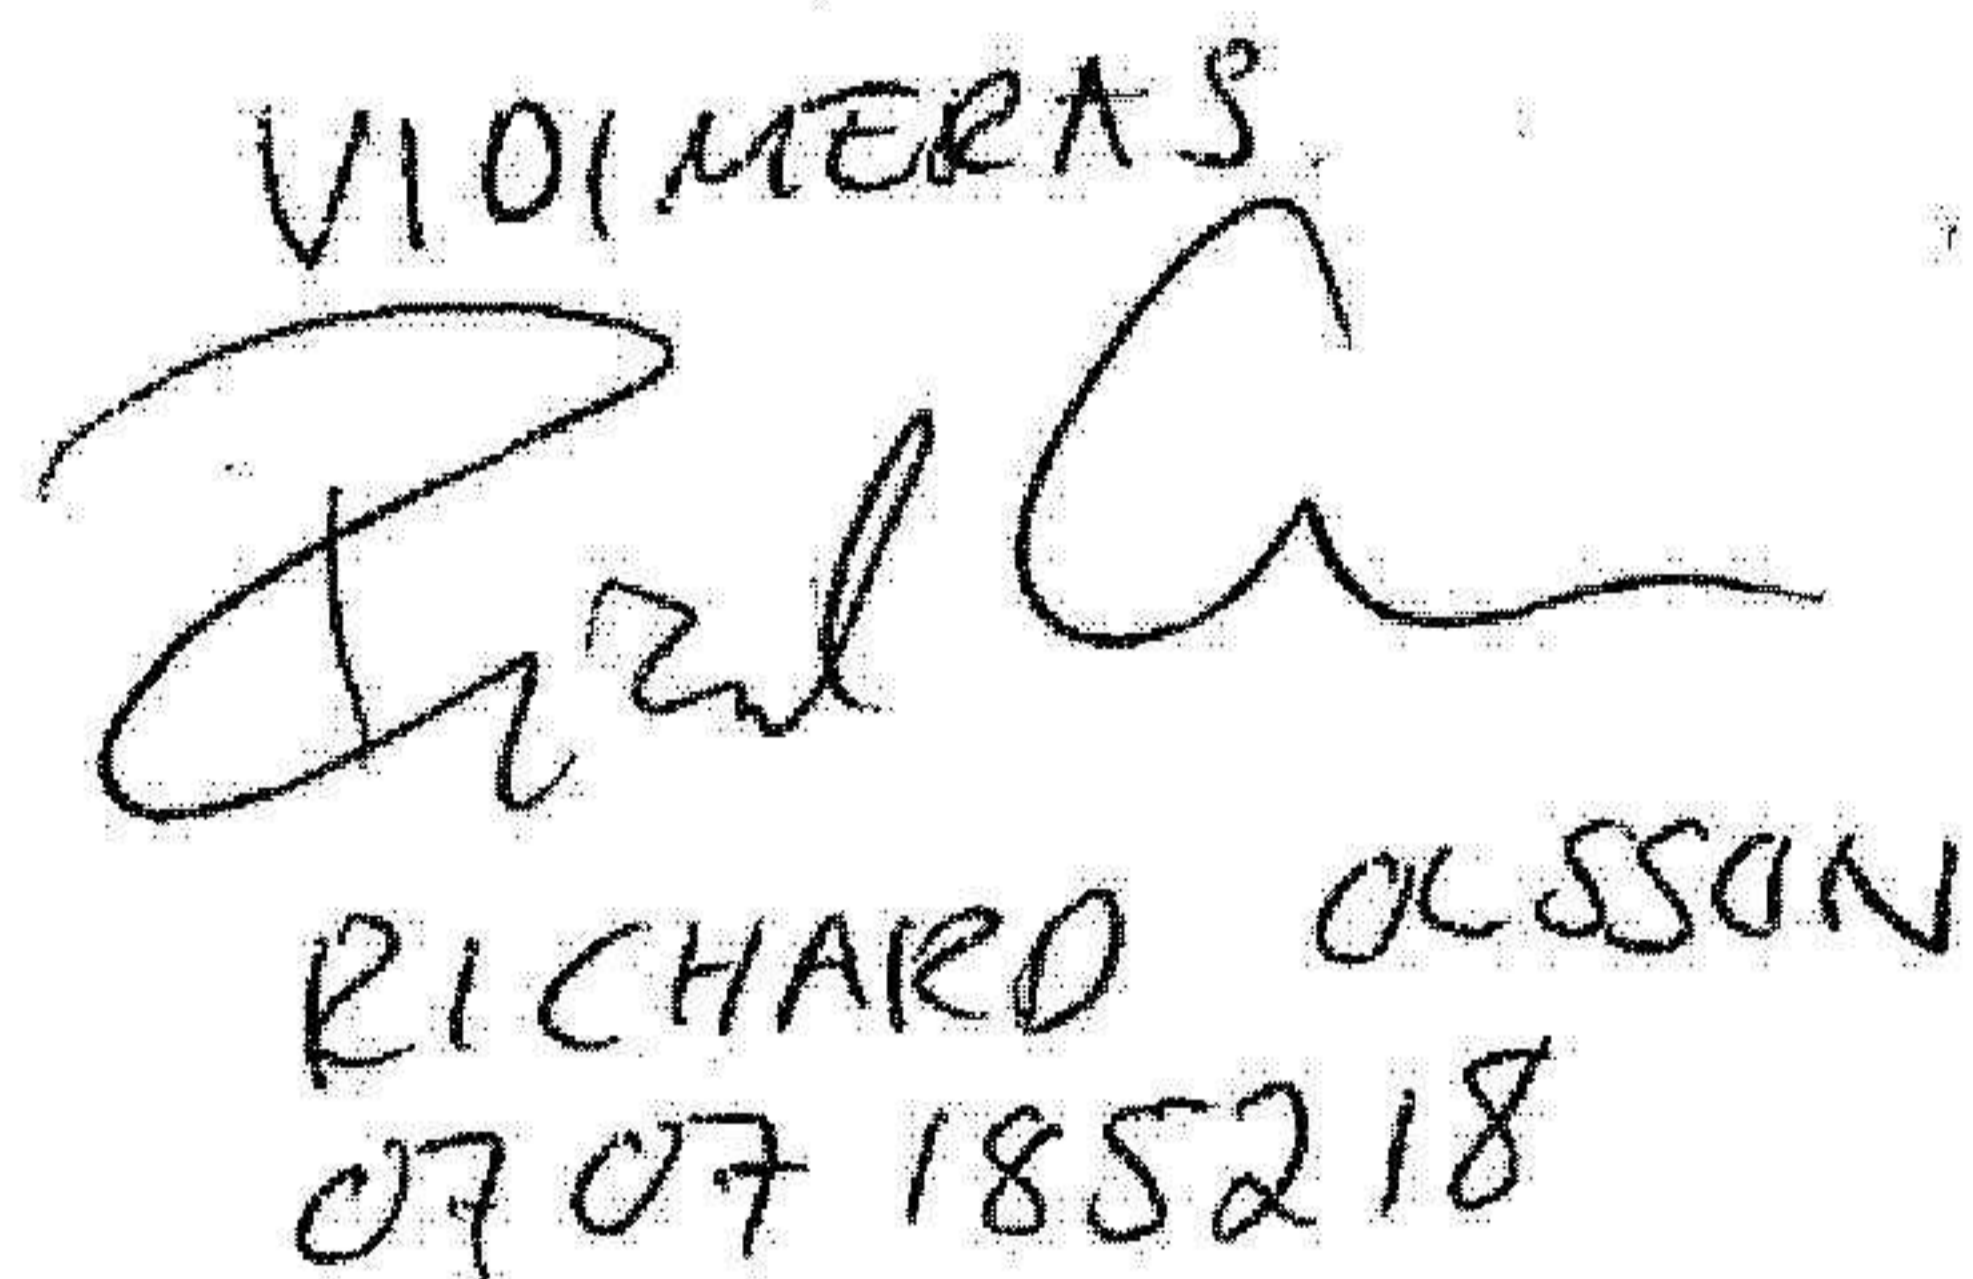 VIDIMERAS
RICHARD OLSSON
0707 185218